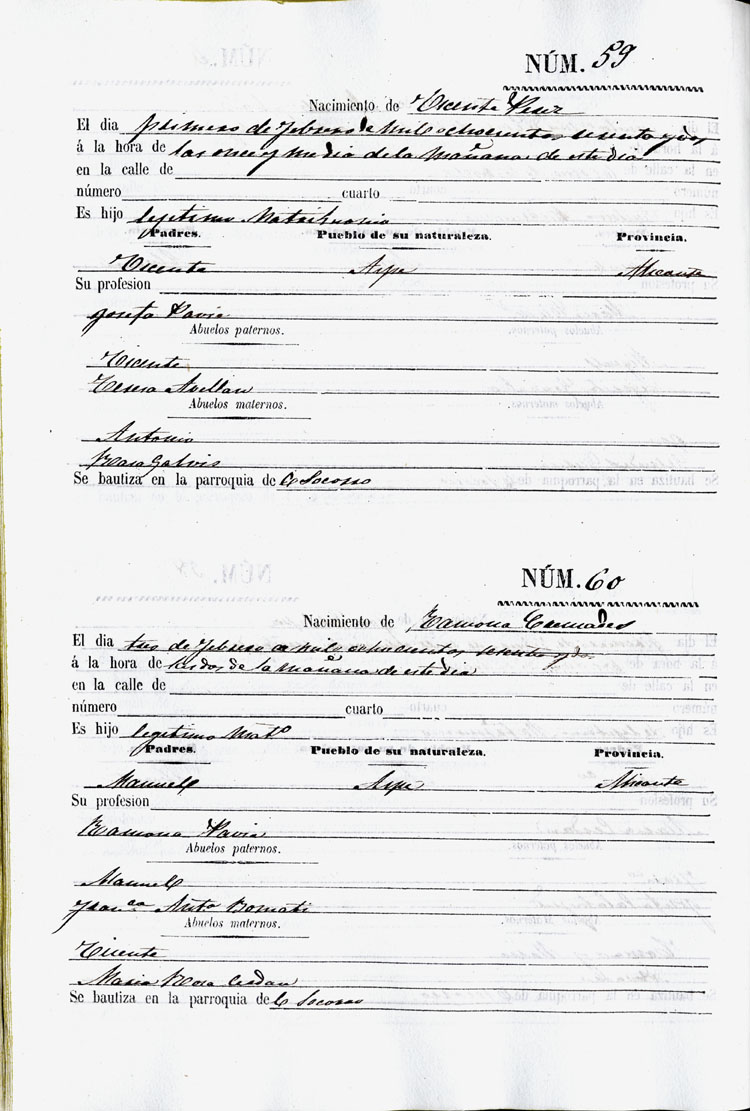 NÚM. 59
Nacimiento de Vicente Perez
El dia primero de Febrero de mil ochocientos sesenta y dos
á la hora de las once y media de la mañana de este dia
en la calle de
número cuarto
Es hijo legitimo Matrimonio
Padres. Pueblo de su naturaleza. Provincia.
Vicente Aspe Alicante
Su profesion
Josefa Pavia
Abuelos paternos.
Vicente
Teresa Avellan
Abuelos maternos.
Antonio
Rosa Galvis
Se bautiza en la parroquia de El Socorro
NÚM. 60
Nacimiento de Ramona Cremades
El dia tres de Febrero de mil ochocientos sesenta y dos
á la hora de las dos de la mañana de este dia
en la calle de
número cuarto
Es hijo legitimo Mat.º
Padres. Pueblo de su naturaleza. Provincia.
Manuel Aspe Alicante
Su profesion
Ramona Pavia
Abuelos paternos.
Manuel
Fran.ca Ant.a Bomati
Abuelos maternos.
Vicente
Maria Rosa Cerdan
Se bautiza en la parroquia de El Socorro